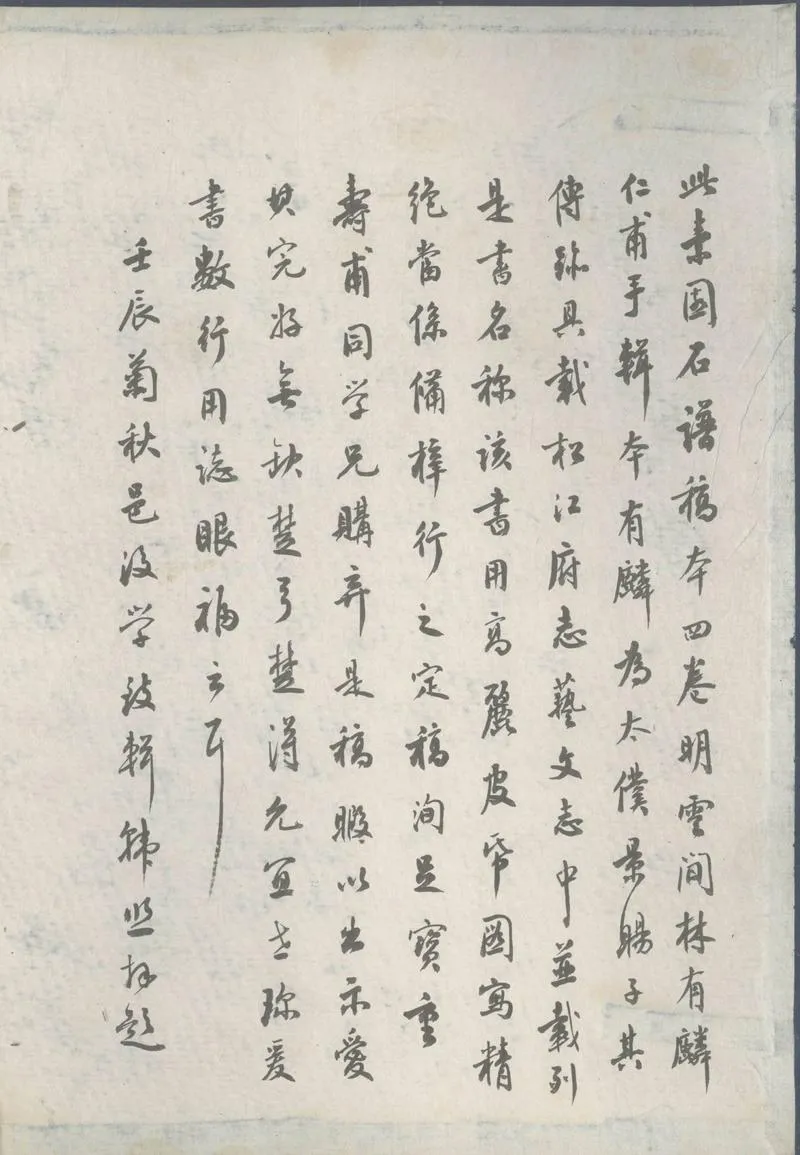 此素園石譜稿本四卷明雲間林有麟
仁甫手輯本有麟為太僕景暘子其
傳跡具載松江府志藝文志中並載列
是書名称該書用高麗皮帋圖寫精
絶當係備梓行之定稿洵足寳重
壽甫同学兄購弆是稿暇以出示愛
其完好無缺楚弓楚得允宜世珍爰
書數行用誌眼福云耳
壬辰菊秋邑後学 輯 題